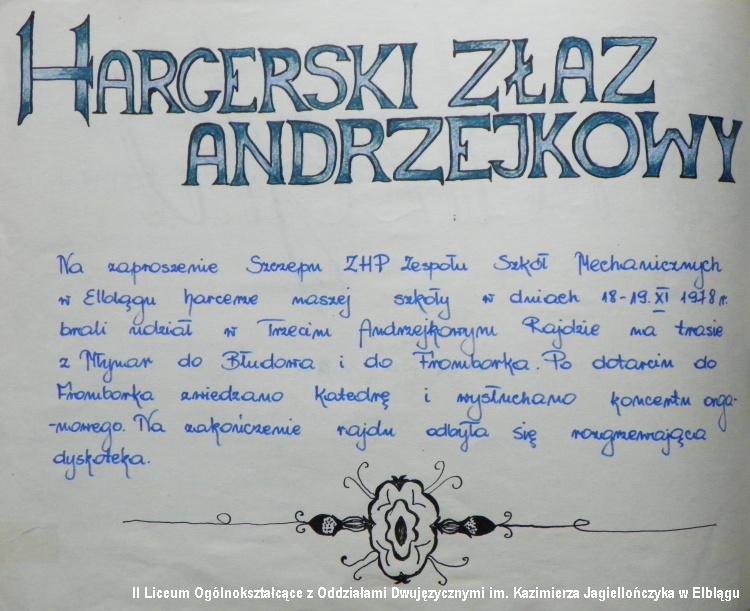 HARCERSKI ZŁAZ
ANDRZEJKOWY
Na zaproszenie Szczepu ZHP Zespołu Szkół Mechanicznych
w Elblągu harcerze naszej szkoły w dniach 18-19. XI 1978 r.
brali udział w Trzecim Andrzejkowym Rajdzie na trasie
z Młynar do Błudowa i do Fromborka. Po dotarciu do
Fromborka zwiedzano katedrę i wysłuchano koncertu orga-
-nowego. Na zakończenie rajdu odbyła się rozgrzewająca
dyskoteka.
II Liceum Ogólnokształcące z Oddziałami Dwujęzycznymi im. Kazimierza Jagiellończyka w Elblągu